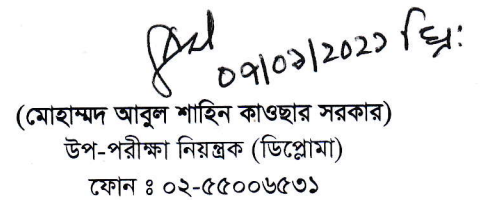 ০৭/০১/২০২১ খ্রি:
(মোহাম্মদ আবুল শাহিন কাওছার সরকার)
উপ-পরীক্ষা নিয়ন্ত্রক (ডিপ্লোমা)
ফোন ঃ ০২-৫৫০০৬৫৩১